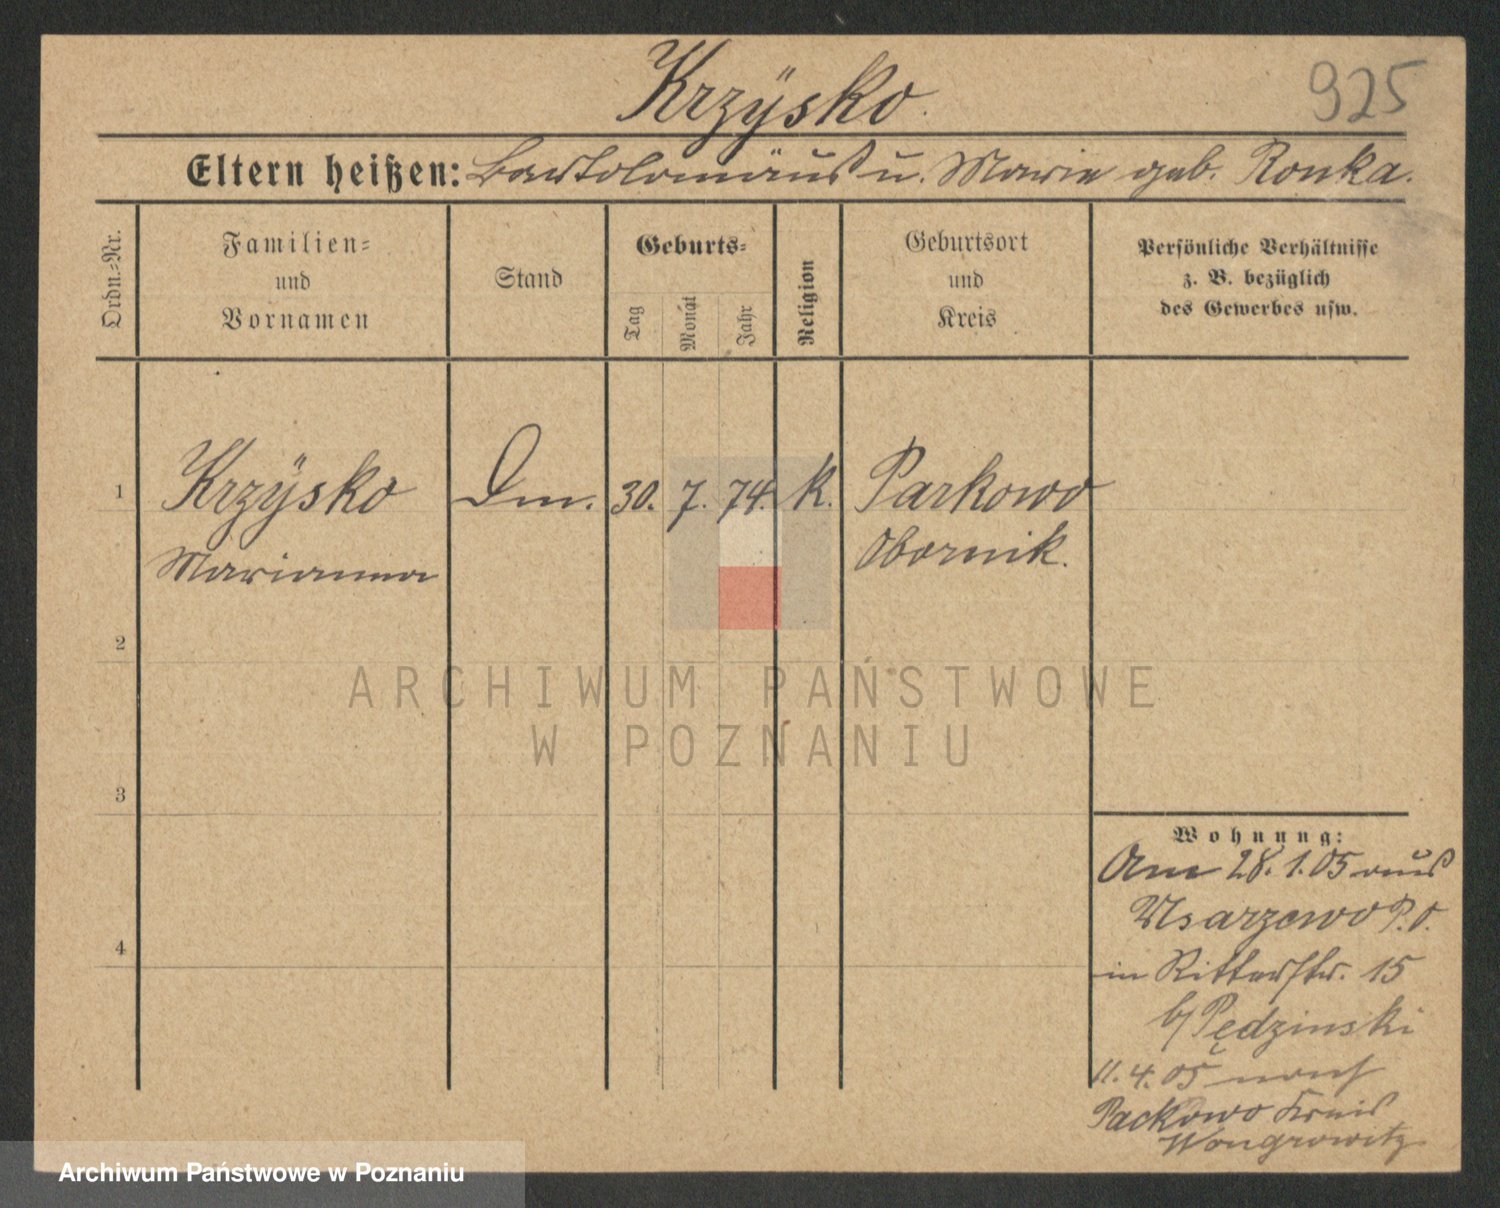 Krzÿsko.
925
Eltern heißen: Bartolomäus u. Marie geb. Ronka.
Ordn.-Nr.
Familien-
und
Vornamen
Stand
Geburts-
Tag
Monat
Jahr
Religion
Geburtsort
und
Kreis
Persönliche Verhältnisse
z. B. bezüglich
des Gewerbes usw.
1
Krzÿsko
Marianna
Dm.
30.
7.
74.
k.
Parkowo
Obornik.
2
3
4
ARCHIWUM PAŃSTWOWE
W POZNANIU
Wohnung:
Am 28.1.05 aus
Usarzewo P.O.
in Ritterstr. 15
b/ Pędzinski
11.4.05 nach
Packowo Kreis
Wongrowitz
Archiwum Państwowe w Poznaniu